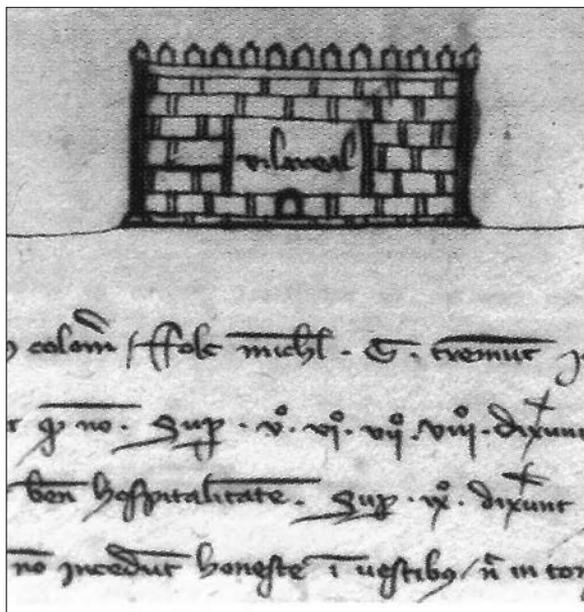 vilareal
colom̄ / ffolc mich̄l · G · tremut
q̄ no · Sup̱ · vº · viº · viiº · viiiº · dixunt
ben̄ hospitalitate · Sup̱ · ixº · dixunt
nō incedūt honeste ī vestibꝫ / n̄ in